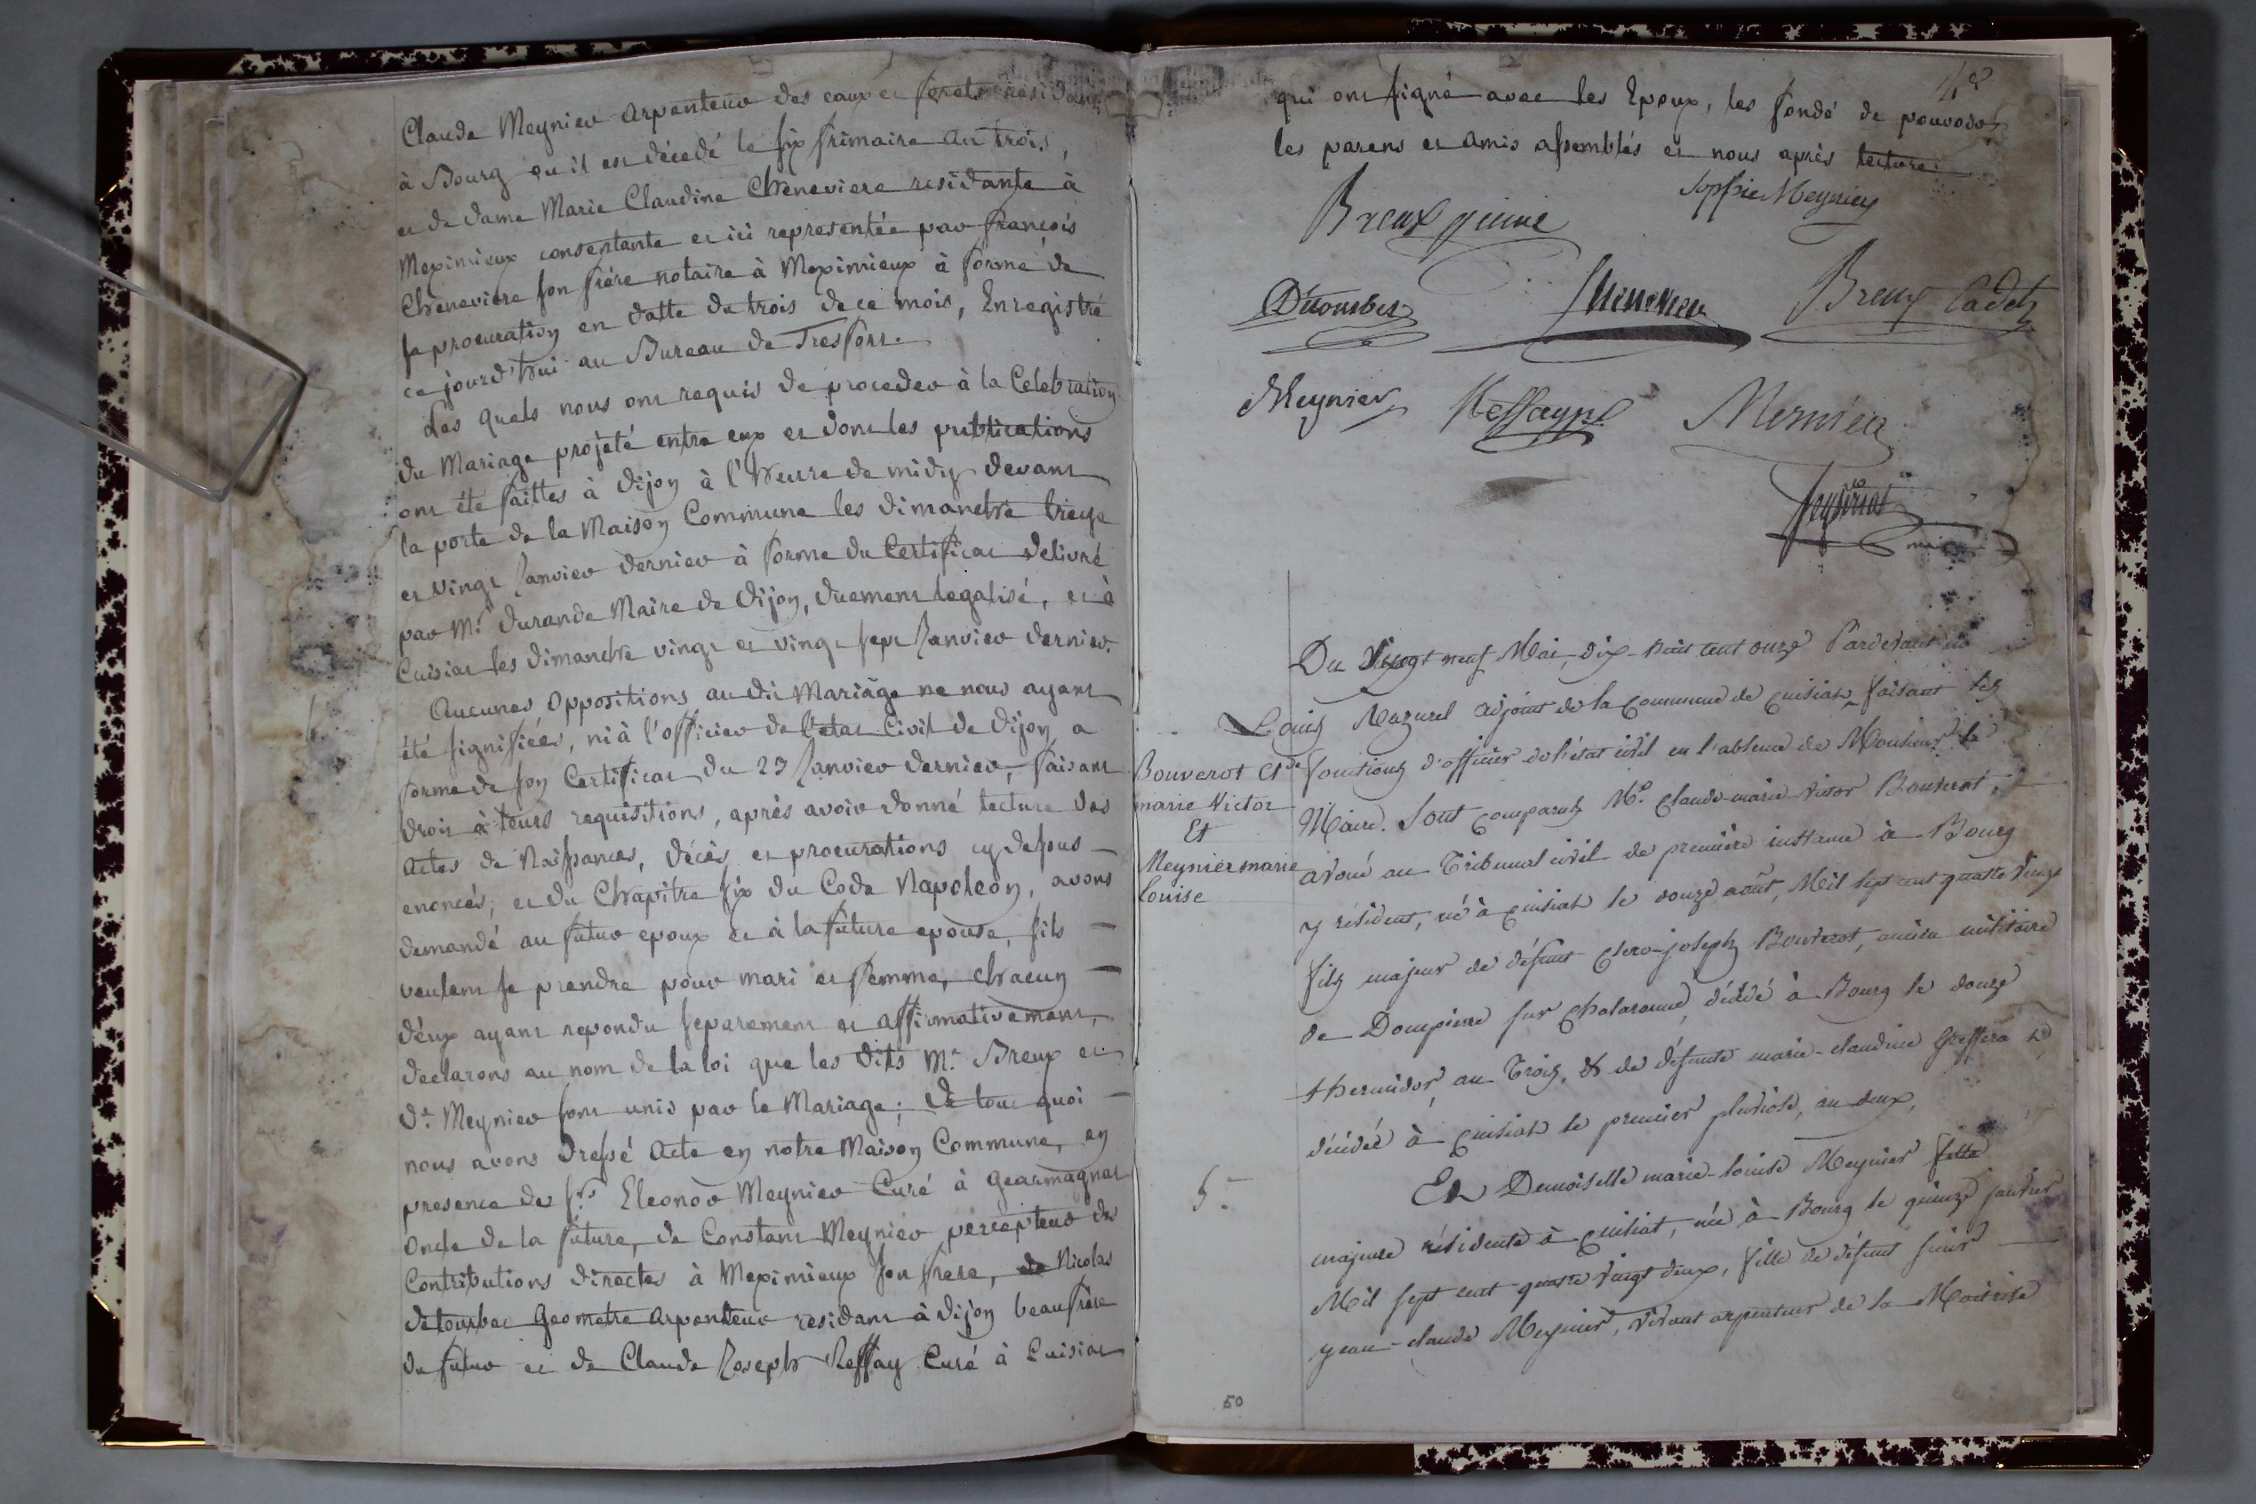 Claude Meynier Arpenteur des eaux et forets résidant
à Bourg ou il est décedé le six frimaire an trois,
et de dame Marie Claudine Chèneviere residante à
Meximieux consentante et ici representée par François
Chèneviere son frére notaire à Meximieux à forme de
sa procuration en datte de trois de ce mois, Enregistré
ce jourd'hui au Bureau de Treffort.
Les quels nous ont requis de proceder à la Celebration
du Mariage projeté entre eux et dont les publications
ont été faittes à Dijon à l'heure de midy devant
la porte de la Maison Commune les dimanche treize
et vingt Janvier dernier à forme du Certificat delivré
par Mr. Durande Maire de Dijon, duement legalisé, et à
Cuisiat les dimanche vingt et vingt sept Janvier dernier.
Aucunes Oppositions au dit Mariage ne nous ayant
été signifiées, ni à l'officier de l'etat Civil de Dijon, a
forme de son Certificat du 23 Janvier dernier, faisant
droit à leurs requisitions, après avoir donné lecture des
Actes de Naissances, décès et procurations cy dessus
enoncés, et du Chapitre six du Code Napoleon, avons
demandé au futur epoux et à la future epouse, s'ils
veulent se prendre pour mari et femme, chacun
d'eux ayant repondu separement et affirmativement,
declarons au nom de la loi que les dits Mr. Breux et
De. Meynier sont unis par le Mariage; de tout quoi
nous avons dressé Acte en notre Maison Commune, en
presence de Srs. Eleonor Meynier Curé à Gearmagnat
Oncle de la future, de Constant Meynier percepteur des
Contributions directes à Meximieux son frere, de Nicolas
détourbet Géometre Arpenteur residant à Dijon beaufrère
du futur et de Claude Joseph Reffay Curé à Cuisiat
48
qui ont signé avec les Epoux, les fondé de pouvoir
les parens et Amis assemblés et nous après lecture.
Sophie Meynier
Breux
Détourbet
Breux Cadet
Meynier
Reffay
Du vingt neuf Mai, dix-huit cent onze Pardevant nous
Louis Mazurel adjoint de la Commune de Cuisiat, faisant les
Bouverot Cde
marie Victor
Et
Meynier marie
Louise
fonctions d'officier de l'état civil en l'absence de Monsieur le
Maire. Sont comparus Mr. Claude-marie-victor Bouverot,
avoué au Tribunal civil de première instance à Bourg
y résident, né à Cuisiat le douze août, Mil sept cent quatre vingt
fils majeur de défunt Joseph Bouverot, ancien militaire
de Dompierre sur Chalaronne, décédé à Bourg le douze
thermidor, an Trois, & de défunte marie-claudine
décédée à Cuisiat le premier pluviose, an deux,
Et Demoiselle marie-louise Meynier fille
majeure résidente à Cuisiat, née à Bourg le quinze janvier
Mil sept cent quatre vingt deux, fille de défunt sieur
jean-claude Meynier, vivant arpenteur de la Maitrise
5.
50